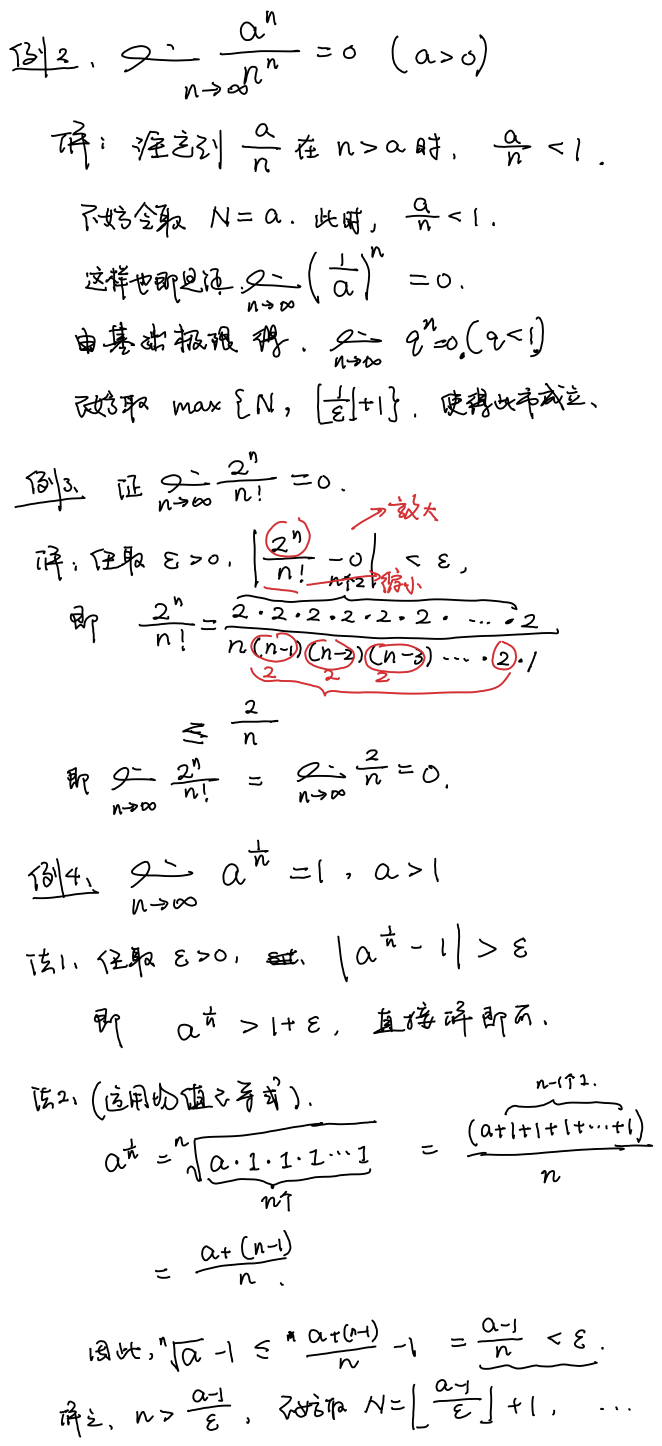 例2. lim_{n→∞} a^n / n^n = 0 (a>0)
解: 注意到 a/n 在 n>a 时, a/n < 1.
不妨令取 N = a. 此时, a/n < 1.
这样也即是证 lim_{n→∞} (1/a)^n = 0.
由基础极限得, lim_{n→∞} q^n=0.(q<1)
不妨取 max {N, [1/ε]+1}, 使得此式成立、
例3、证 lim_{n→∞} 2^n / n! = 0.
→放大
解: 任取 ε>0, |2^n / n! - 0| < ε,
→缩小
n个2
即 2^n / n! = 2·2·2·2·2·2· ··· ·2 / n(n-1)(n-2)(n-3) ··· ·2·1
2 2 2
≤ 2/n
即 lim_{n→∞} 2^n / n! = lim_{n→∞} 2/n = 0.
例4、lim_{n→∞} a^{1/n} = 1, a>1
法1、任取 ε>0, |a^{1/n} - 1| > ε
即 a^{1/n} > 1+ε, 直接解即可.
法2、(运用均值不等式).
n-1个1.
a^{1/n} = ⁿ√(a·1·1·1···1) = (a+1+1+1+···+1) / n
n个
= a+(n-1) / n.
因此, ⁿ√a - 1 ≤ a+(n-1) / n - 1 = a-1 / n < ε.
解之, n > a-1 / ε, 不妨取 N = ⌊a-1 / ε⌋ + 1, ...